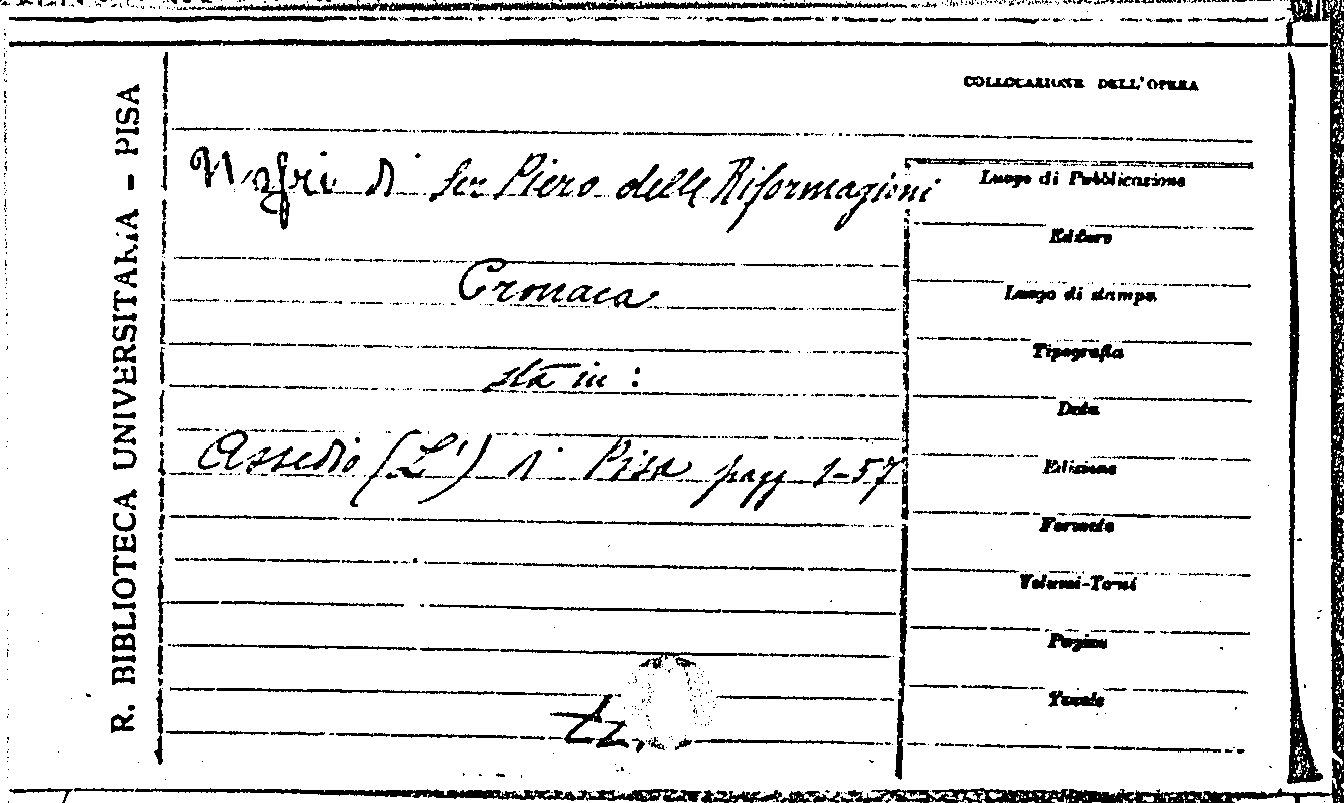 R. BIBLIOTECA UNIVERSITARIA - PISA
COLLOCAZIONE DELL'OPERA
Nofri di Ser Piero delle Riformazioni
Cronaca
sta in :
Assedio (L') di Pisa pagg 1-57
Luogo di Pubblicazione
Editore
Luogo di stampa
Tipografia
Data
Edizione
Formato
Volumi-Tomi
Pagine
Tavole